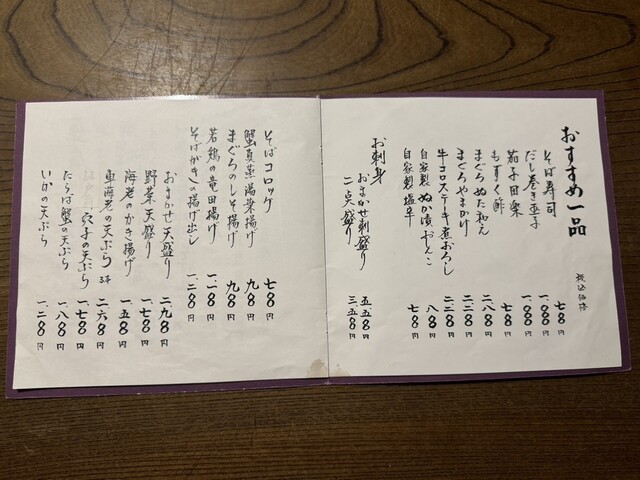 おすすめ一品
税込価格
そば寿司 七〇〇円
だし巻き玉子 一、〇〇〇円
茄子田楽 一、〇〇〇円
もずく酢 七〇〇円
まぐろぬた和え 二、八〇〇円
まぐろやまかけ 二、二〇〇円
牛コロステーキ煮おろし 二、二〇〇円
自家製 ぬか漬おしんこ 八〇〇円
自家製 塩辛 七〇〇円
お刺身
おまかせ刺盛り 五、五〇〇円
二点盛り 三、五〇〇円
そばコロッケ 七〇〇円
蟹真蒸湯葉揚げ 九〇〇円
まぐろのしそ揚げ 九〇〇円
若鶏の竜田揚げ 一、一〇〇円
そばがきの揚げ出し 一、二〇〇円
おまかせ天盛り 二、九〇〇円
野菜天盛り 一、七〇〇円
海老のかき揚げ 一、五〇〇円
車海老の天ぷら 二、六〇〇円
穴子の天ぷら 一、七〇〇円
たらば蟹の天ぷら 一、八〇〇円
いかの天ぷら 一、二〇〇円